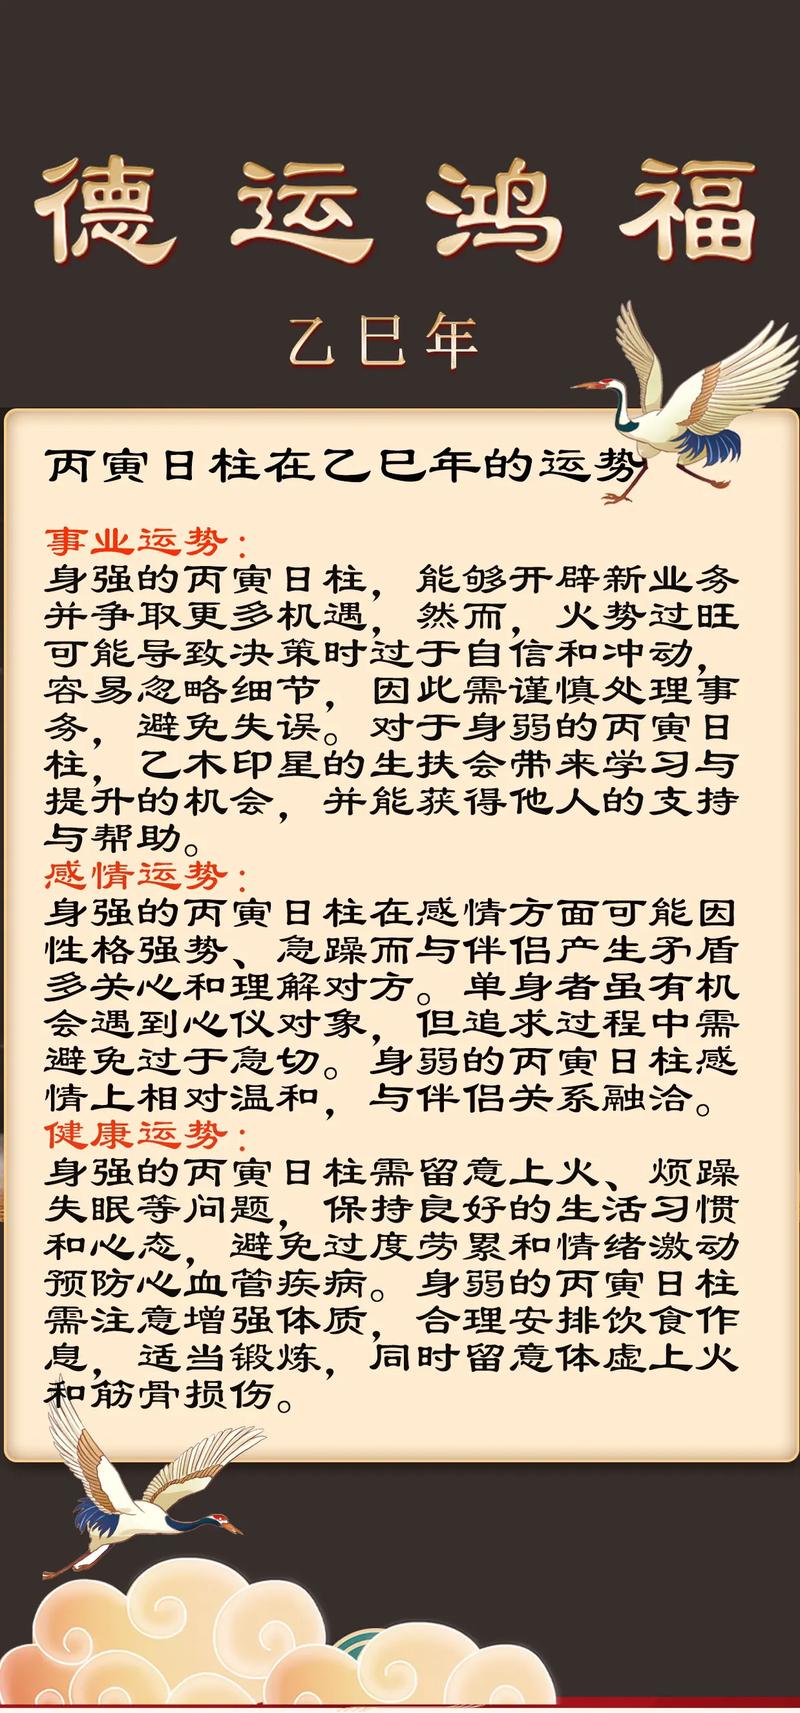 德运鸿福
乙巳年
丙寅日柱在乙巳年的运势
事业运势：
身强的丙寅日柱，能够开辟新业务
并争取更多机遇，然而，火势过旺
可能导致决策时过于自信和冲动，
容易忽略细节，因此需谨慎处理事
务，避免失误。对于身弱的丙寅日
柱，乙木印星的生扶会带来学习与
提升的机会，并能获得他人的支持
与帮助。
感情运势：
身强的丙寅日柱在感情方面可能因
性格强势、急躁而与伴侣产生矛盾
多关心和理解对方。单身者虽有机
会遇到心仪对象，但追求过程中需
避免过于急切。身弱的丙寅日柱感
情上相对温和，与伴侣关系融洽。
健康运势：
身强的丙寅日柱需留意上火、烦躁
失眠等问题，保持良好的生活习惯
和心态，避免过度劳累和情绪激动
预防心血管疾病。身弱的丙寅日柱
需注意增强体质，合理安排饮食作
息，适当锻炼，同时留意体虚上火
和筋骨损伤。